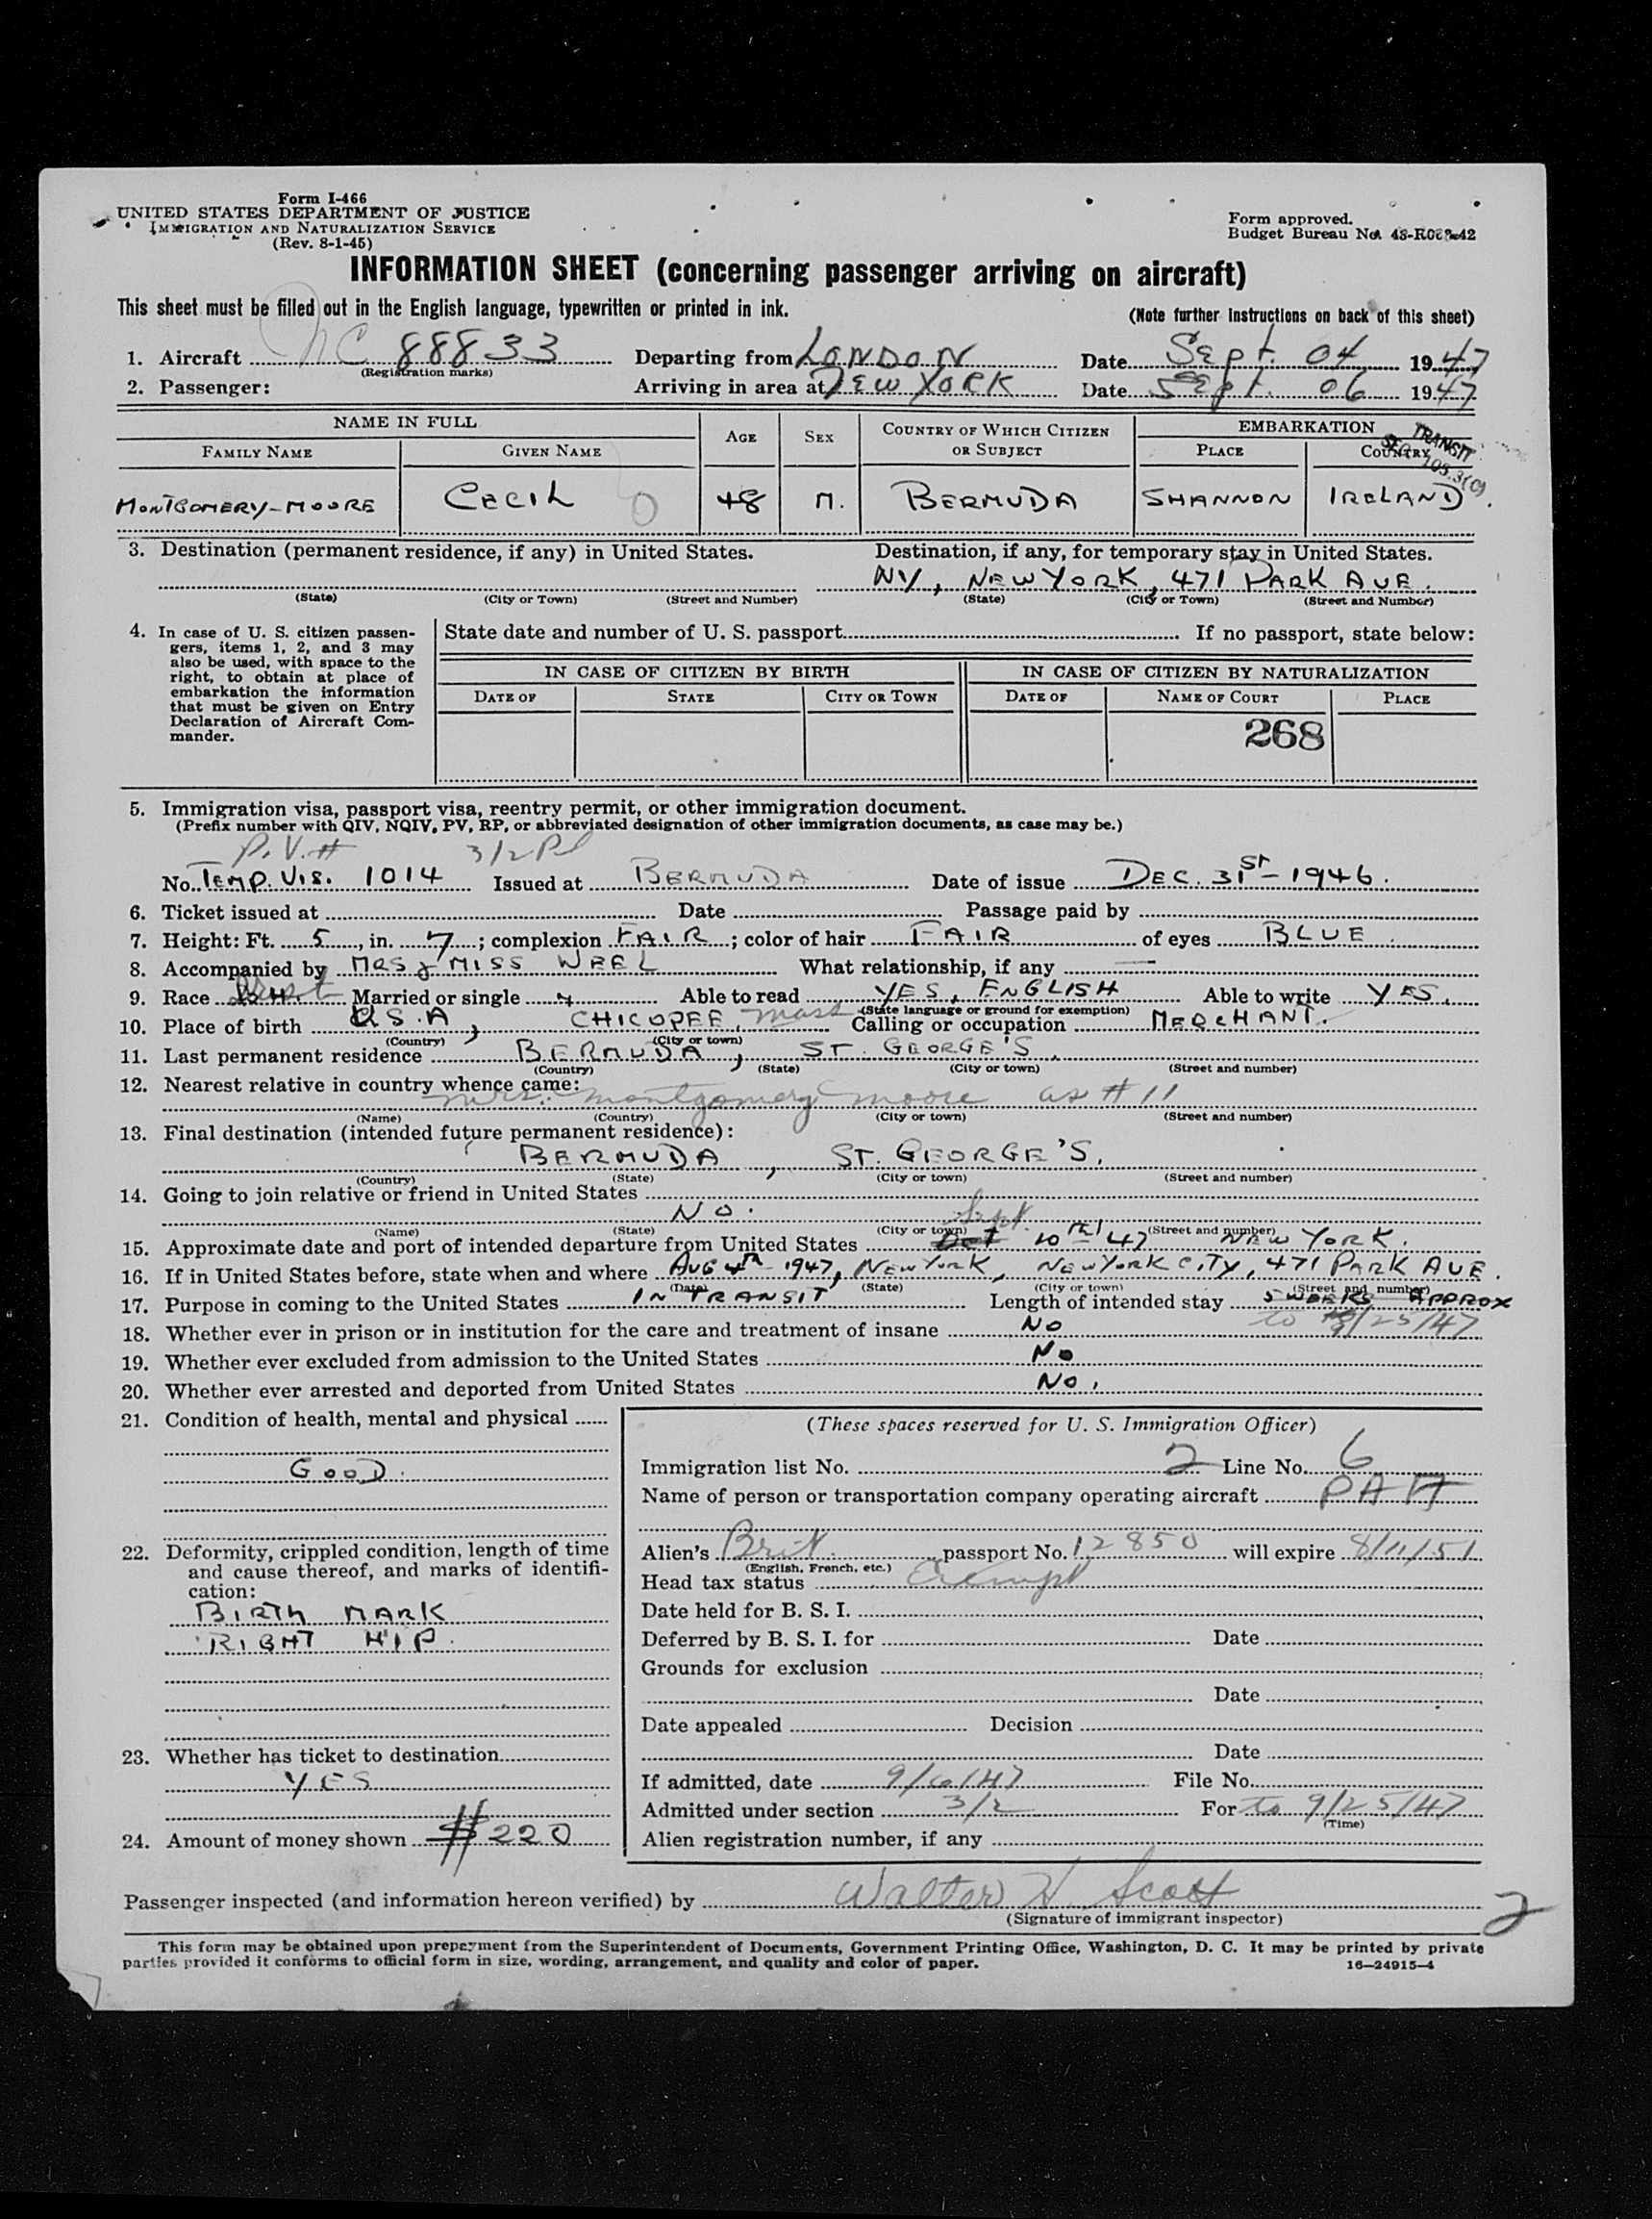 Form I-466
UNITED STATES DEPARTMENT OF JUSTICE
IMMIGRATION AND NATURALIZATION SERVICE
(Rev. 8-1-45)
Form approved.
Budget Bureau No. 43-
INFORMATION SHEET (concerning passenger arriving on aircraft)
This sheet must be filled out in the English language, typewritten or printed in ink. (Note further instructions on back of this sheet)
1. Aircraft NC 88833 Departing from LONDON Date Sept. 04 1947
(Registration marks)
2. Passenger: Arriving in area at NEW YORK Date Sept. 06 1947
NAME IN FULL AGE SEX COUNTRY OF WHICH CITIZEN OR SUBJECT EMBARKATION
FAMILY NAME GIVEN NAME PLACE COUNTRY
TRANSIT
SEC. 103.3(c)
MONTGOMERY-MOORE CECIL 48 M. BERMUDA SHANNON IRELAND
3. Destination (permanent residence, if any) in United States. Destination, if any, for temporary stay in United States.
NY, NEW YORK, 471 PARK AVE.
(State) (City or Town) (Street and Number) (State) (City or Town) (Street and Number)
4. In case of U. S. citizen passen-
gers, items 1, 2, and 3 may
also be used, with space to the
right, to obtain at place of
embarkation the information
that must be given on Entry
Declaration of Aircraft Com-
mander.
State date and number of U. S. passport If no passport, state below:
IN CASE OF CITIZEN BY BIRTH IN CASE OF CITIZEN BY NATURALIZATION
DATE OF STATE CITY OR TOWN DATE OF NAME OF COURT PLACE
268
5. Immigration visa, passport visa, reentry permit, or other immigration document.
(Prefix number with QIV, NQIV, PV, RP, or abbreviated designation of other immigration documents, as case may be.)
P.V.# 3/2
No. TEMP. VIS. 1014 Issued at BERMUDA Date of issue DEC. 31ST - 1946.
6. Ticket issued at Date Passage paid by
7. Height: Ft. 5, in. 7; complexion FAIR; color of hair FAIR of eyes BLUE
8. Accompanied by MRS & MISS What relationship, if any —
9. Race Married or single Able to read YES, ENGLISH Able to write YES.
(State language or ground for exemption)
10. Place of birth U.S.A, CHICOPEE, Mass Calling or occupation MERCHANT.
(Country) (City or town)
11. Last permanent residence BERMUDA, ST. GEORGE'S.
(Country) (State) (City or town) (Street and number)
12. Nearest relative in country whence came:
Mrs. Montgomery Moore as #11
(Name) (Country) (City or town) (Street and number)
13. Final destination (intended future permanent residence):
BERMUDA, ST. GEORGE'S.
(Country) (State) (City or town) (Street and number)
14. Going to join relative or friend in United States
NO.
(Name) (State) (City or town) (Street and number)
Sept.
15. Approximate date and port of intended departure from United States OCT 10th/47 NEW YORK.
16. If in United States before, state when and where AUG 4th - 1947, NEW YORK, NEW YORK CITY, 471 PARK AVE.
(Date) (State) (City or town) (Street and number)
17. Purpose in coming to the United States IN TRANSIT Length of intended stay 5 WEEKS APPROX
18. Whether ever in prison or in institution for the care and treatment of insane NO to 9/25/47
19. Whether ever excluded from admission to the United States NO
20. Whether ever arrested and deported from United States NO.
21. Condition of health, mental and physical
GOOD.
22. Deformity, crippled condition, length of time
and cause thereof, and marks of identifi-
cation:
BIRTH MARK
RIGHT HIP.
23. Whether has ticket to destination
YES
24. Amount of money shown $220
(These spaces reserved for U. S. Immigration Officer)
Immigration list No. 2 Line No. 6
Name of person or transportation company operating aircraft PAA
Alien's Brit. passport No. 12850 will expire 8/11/51
(English, French, etc.)
Head tax status Exempt
Date held for B. S. I.
Deferred by B. S. I. for Date
Grounds for exclusion
Date
Date appealed Decision
Date
If admitted, date 9/6/47 File No.
Admitted under section 3/2 For to 9/25/47
(Time)
Alien registration number, if any
Passenger inspected (and information hereon verified) by Walter H. Scott
(Signature of immigrant inspector)
2
This form may be obtained upon prepayment from the Superintendent of Documents, Government Printing Office, Washington, D. C. It may be printed by private
parties provided it conforms to official form in size, wording, arrangement, and quality and color of paper. 16—24915-4